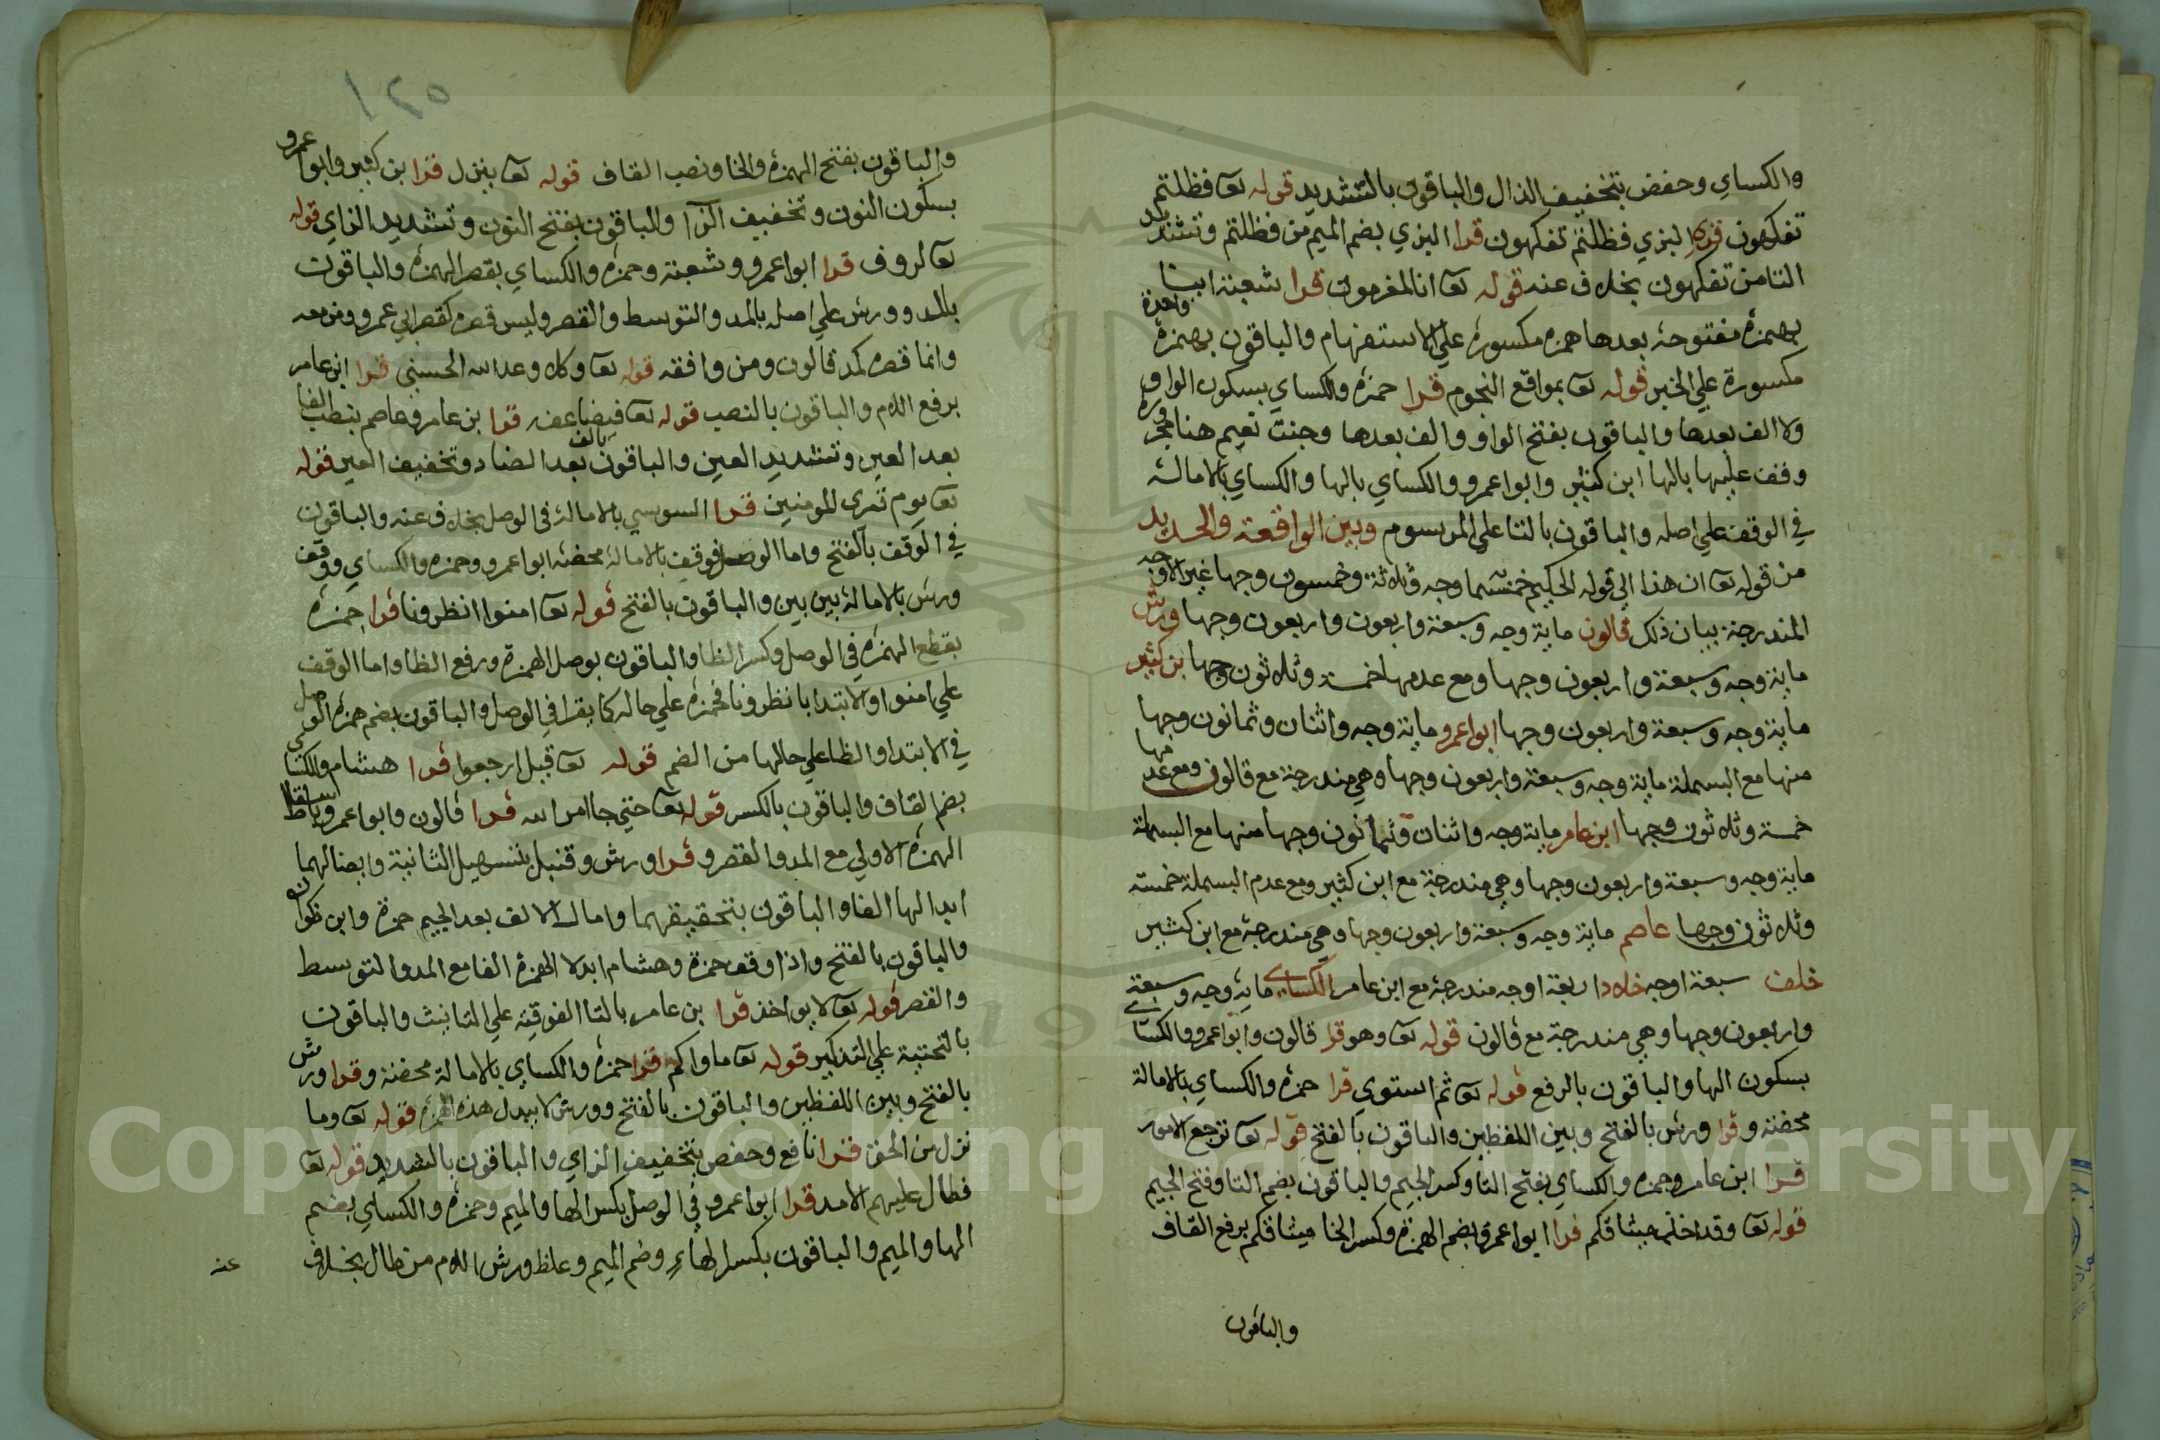 والكساي وحفص بتخفيف الذال والباقون بالتشديد قوله تعا فظلتم
تفكهون قرا البزي فظلتم تفكهون قرا البزي بضم الميم من فظلتم وتشديد
التا من تفكهون بخلاف عنه قوله تعا انا لمغرمون قرا شعبة اينا
بهمزة مفتوحة بعدها همزه مكسورة علي الاستفهام والباقون بهمزة واحدة
مكسورة علي الخبر قوله تعا بمواقع النجوم قرا حمزه والكساي بسكون الواو
ولا الف بعدها والباقون بفتح الواو والف بعدها وجنت نعيم هنا مجروره
وقف عليها بالها ابن كثير وابو عمرو والكساي بالها والكساي بالامالة
في الوقف علي اصله والباقون بالتا علي المرسوم وبين الواقعة والحديد
من قوله تعا ان هذا الي قوله الحكيم خمسما وجه وثلاثة وخمسون وجها غير الاوجه
المندرجة بيان ذلك قالون ماية وجه وسبعة واربعون واربعون وجها ورش
ماية وجه وسبعة واربعون وجها ومع عدمها خمسة وثلاثون وجها بن كثير
ماية وجه وسبعة واربعون وجها ابو اعمرو ماية وجه واثنان وثمانون وجها
منها مع البسملة ماية وجه وسبعة واربعون وجها وهي مندرجة مع قالون ومع عدمها
خمسة وثلاثون وجها ابن عامر ماية وجه واثنان وثمانون وجها منها مع البسملة
ماية وجه وسبعة واربعون وجها وهي مندرجة مع ابن كثير ومع عدم البسملة خمسة
وثلاثون وجها عاصم ماية وجه وسبعة واربعون وجها وهي مندرجة مع ابن كثير
خلف سبعة اوجه خلاد اربعة اوجه مندرجة مع ابن عامر الكساي ماية وجه وسبعة
واربعون وجها وهي مندرجة مع قالون قوله تعا وهو قرا قالون وابو اعمرو والكساي
بسكون الها والباقون بالرفع قوله تعا ثم استوي قرا حمزه والكساي بالامالة
محضة وقرا ورش بالفتح وبين اللفظين والباقون بالفتح قوله تعا ترجع الامور
قرا ابن عامر وحمزه والكساي بفتح التا وكسر الجيم والباقون بضم التا وفتح الجيم
قوله تعا وقد اخذ ميثاقكم قرا ابو اعمرو بضم الهمزة وكسر الخا ميثاقكم برفع القاف
والباقون
١٢٥
والباقون بفتح الهمزة والخا ونصب القاف قوله تعا ينزل قرا بن كثير وابو اعمرو
بسكون النون وتخفيف الزا والباقون بفتح النون وتشديد الزاي قوله
تعا لروف قرا ابو اعمرو وشعبة وحمزه والكساي بقصر الهمزه والباقون
بالمد وورش علي اصله بالمد والتوسط والقصر وليس قصره كقصر ابي عمرو ومن معه
وانما قصره كمد قالون ومن وافقه قوله تعا وكلا وعد الله الحسني قرا ابن عامر
برفع اللام والباقون بالنصب قوله تعا فيضاعفه قرا بن عامر وعاصم بنصب الفا
بعد العين وتشديد العين والباقون بالف بعد الضاد وتخفيف العين قوله
تعا يوم تري المومنين قرا السوسي بالامالة في الوصل بخلاف عنه والباقون
في الوقف بالفتح واما الوصل فوقف بالامالة محضة ابو اعمرو وحمزه والكساي ووقف
ورش بالامالة بين بين والباقون بالفتح قوله تعا امنوا انظرونا قرا حمزه
بقطع الهمزه في الوصل وكسر الظا والباقون بوصل الهمزة ورفع الظا واما الوقف
علي امنوا والابتدا بانظرونا فحمزه علي حاله كما يقرا في الوصل والباقون بضم همزه الوصل
في الابتدا والظا علي حالها من الضم قوله تعا قيل ارجعوا قرا هشام والكساي
بضم القاف والباقون بالكسر قوله تعا حتي جا امر الله قرا قالون وابو اعمرو باسقاط
الهمزه الاولي مع المد والقصر وقرا ورش وقنبل بتسهيل الثانية وايضا لهما
ابدالها الفا والباقون بتحقيقهما وامال الالف بعد الجيم حمزة وابن ذكوان
والباقون بالفتح واذا وقف حمزة وهشام ابدلا الهمزة الفا مع المد والتوسط
والقصر قوله تعا لا يواخذ قرا بن عامر بالتا الفوقية علي التانيث والباقون
بالتحتية علي التذكير قوله تعا ماواكم قرا حمزه والكساي بالامالة محضة وقرا ورش
بالفتح وبين اللفظين والباقون بالفتح وورش لا يبدل هذه الهمزه قوله تعا وما
نزل من الحق قرا نافع وحفص بتخفيف الزاي والباقون بالتشديد قوله تعا
فطال عليهم الامد قرا ابو اعمرو في الوصل بكسر الها والميم وحمزه والكساي بضم
الها والميم والباقون بكسر الهاء وضم الميم وغلظ ورش اللام من طال بخلاف
عنه
Copyright © King Saud University